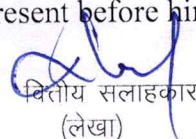 resent before hi
वित्तीय सलाहकार
(लेखा)